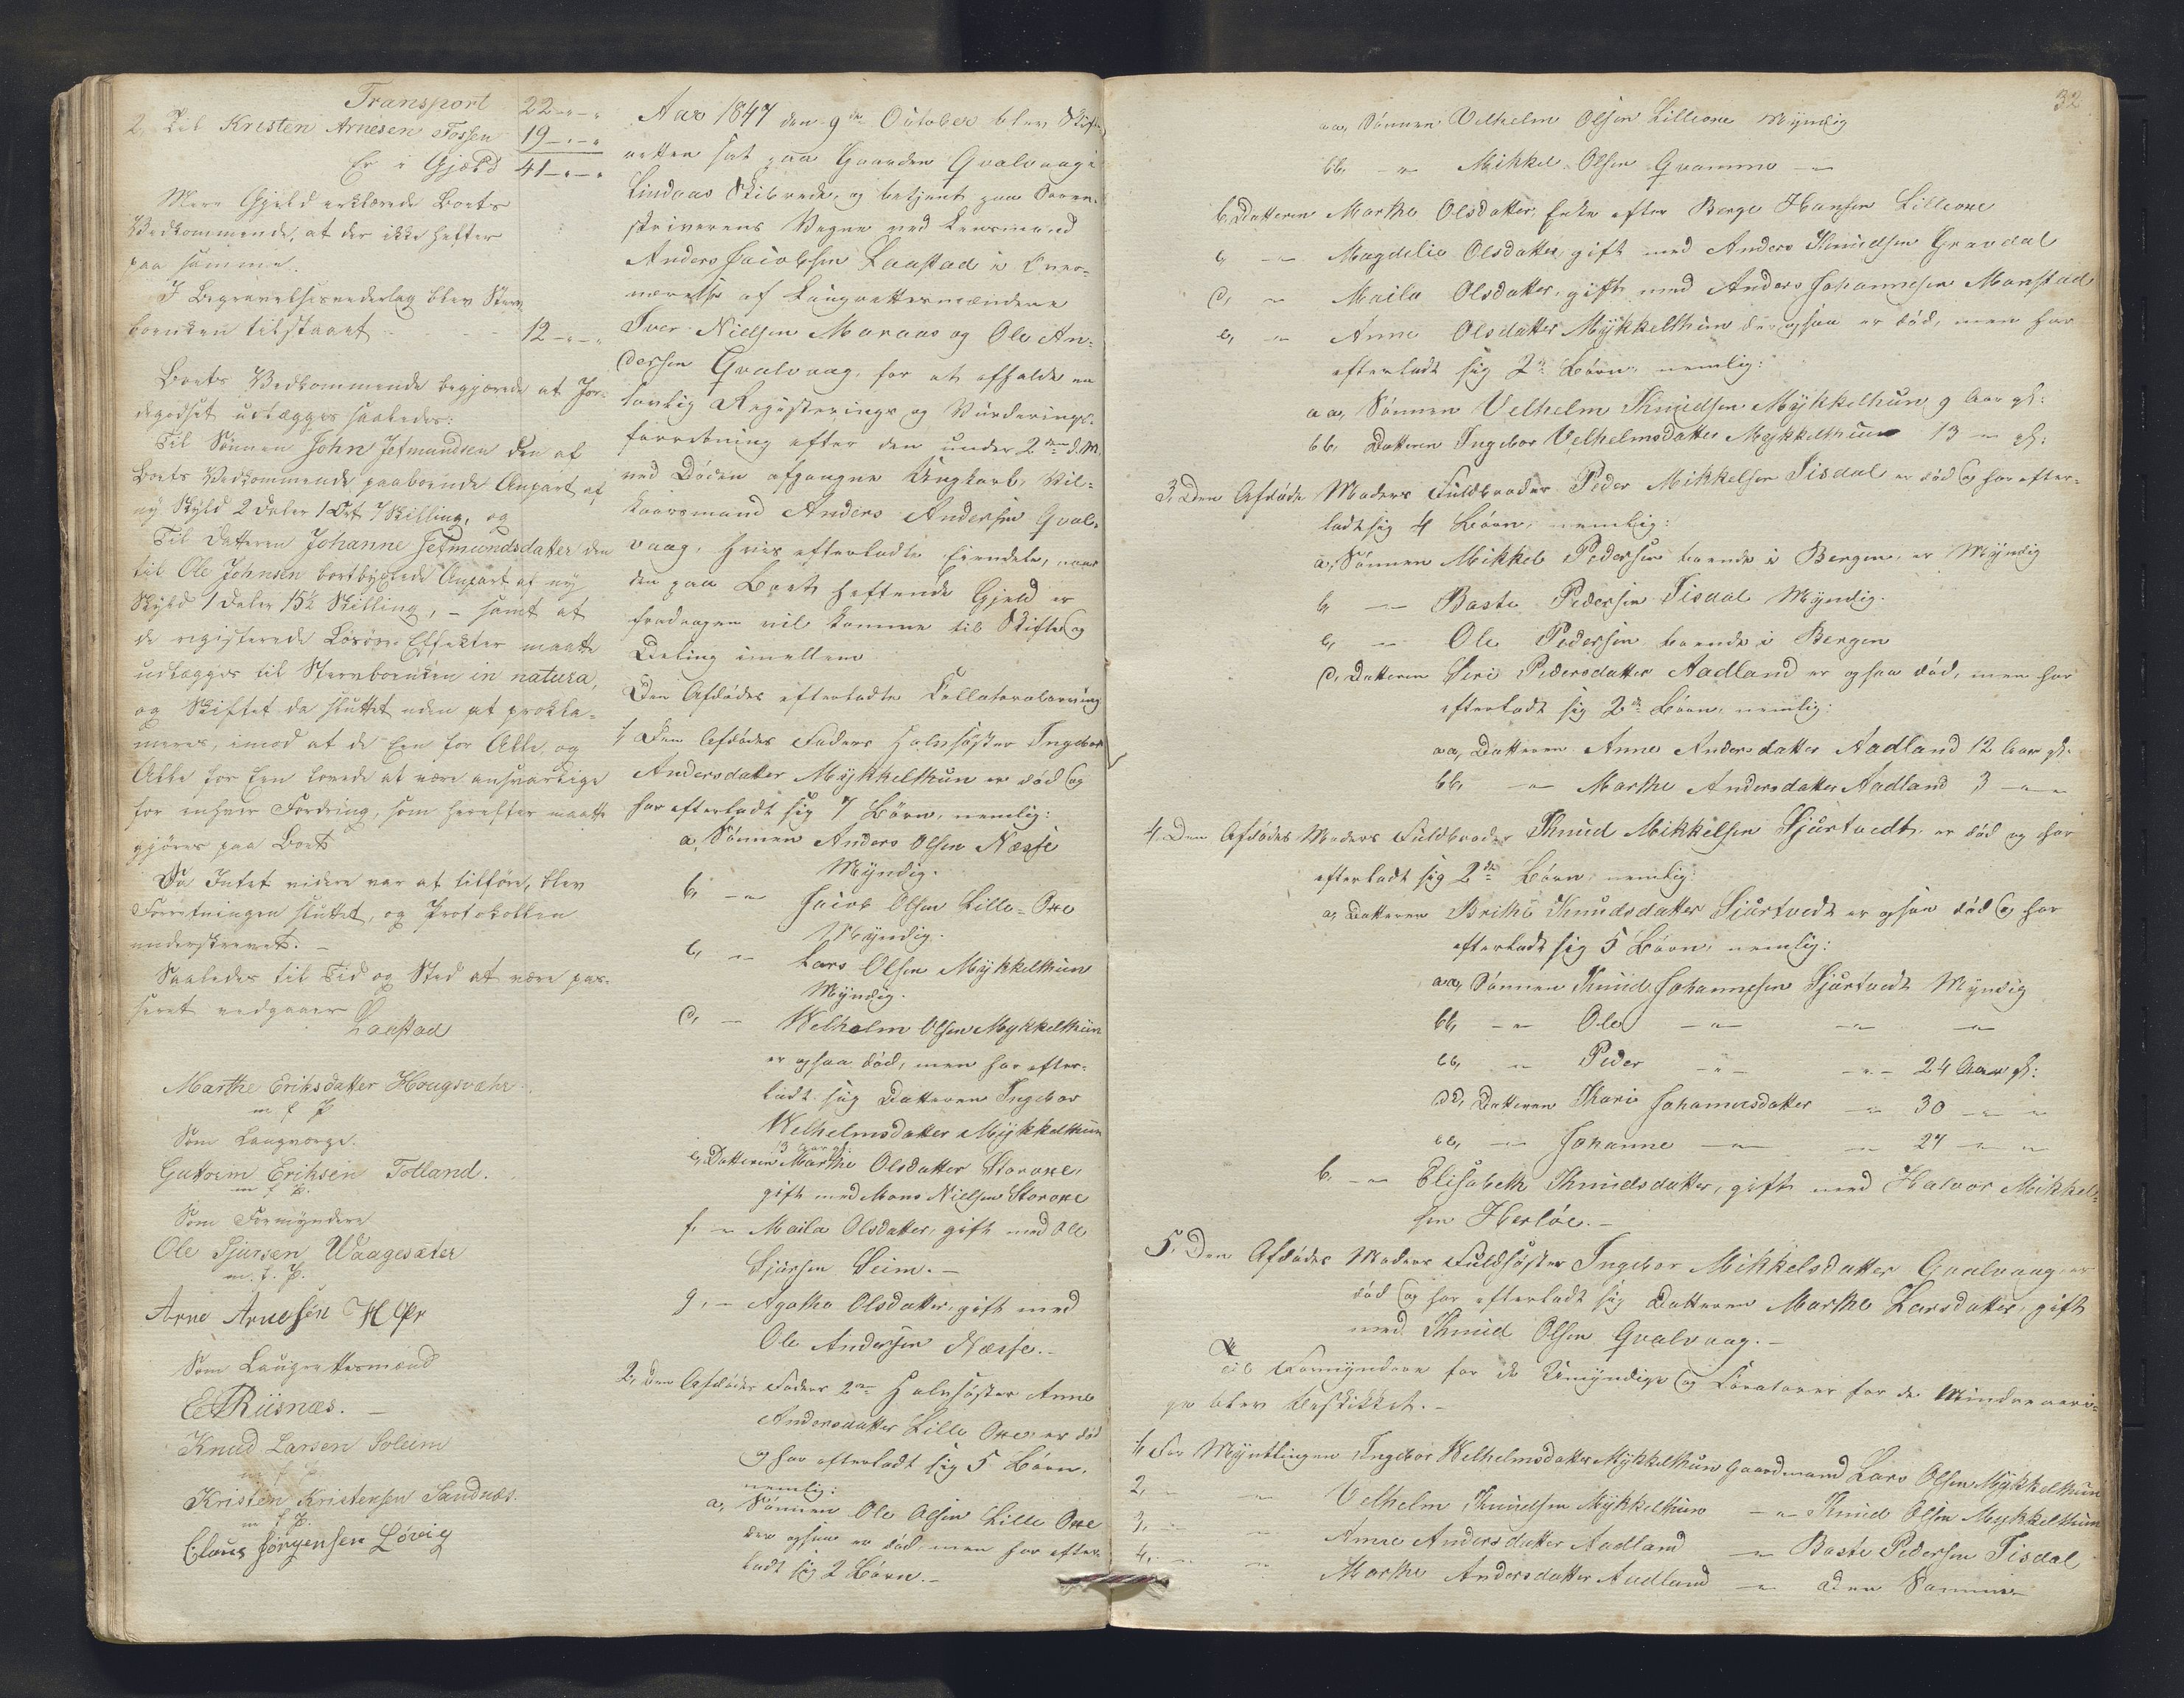 Transport 22 - " - "
2, Til Kristen Arnesen Fossen 19 - " - "
Er i Gjæld 41 - " - "
Mere Gjæld erklærede Boets
Vedkommende, at der ikke hefter
paa samme.
I Begravelsesvederlag blev Sterv-
boenken tilstaaet - - - 12 - " - "
Boets Vedkommende begjærede at Jor-
degodset udlægges saaledes:
Til Sønnen John Jetmundsen den af
Boets Vedkommende paaboende Anpart af
ny Skyld 2 Daler 1 Ort 7 Skilling, og
Til Datteren Johanne Jetmundsdatter den
til Ole Johnsen bortbyxlede Anpart af ny
Skyld 1 Daler 15½ Skilling, - samt at
de registerede Løsøre Effekter maatte
udlægges til Stervboenken in natura,
og Skiftet da sluttet uden at prokla-
meres, imod at de Een for Alle og
Alle for Een lovede at være ansvarlige
for enhver Fordring, som herefter maatte
gjøres paa Boet
Da Intet videre var at tilføre, blev
Forretningen sluttet, og Protokollen
underskrevet. -
Saaledes til Tid og Sted at være pas-
seret vedgaaer
Laastad
Marthe Eriksdatter Hougsvæhr
m f P
Som Laugværge.
Guttorm Eriksen Tolland.
m f P.
Som Formyndere
Ole Sjursen Waagesæter
m. f. P.
Arne Arnesen
Som Laugrettesmænd
E Riisnæs. -
Knud Larsen Soleim
m f P
Kristen Kristensen Sandnæs.
m f P.
Claus Jørgensen Løvig
Aar 1847 den 9de October blev Skifte-
retten sat paa Gaarden Qvalvaag i
Lindaas Skibrede, og betjent paa Soren-
skriverens Vegne ved Lensmand
Anders Jacobsen Laastad i Over-
værelse af Laugrettesmændene
Iver Nielsen Maraas og Ole An-
dersen Qvalvaag, for at afholde en
lovlig Registerings og Vurderings-
forretning efter den under 2den d. M.
ved Døden afgangne Ungkarl, Vil-
kaarsmand Anders Andersen Qval-
vaag, hvis efterladte Eiendele, naar
den paa Boet heftende Gjeld er
fradragen vil komme til Skifte og
Deling imellem
Den Afdødes efterladte Collateralarving
1, Den Afdødes Faders Halvsøster Ingebor
Andersdatter Mykkelthun er død og
har efterladt sig 7 Børn, nemlig:
a, Sønnen Anders Olsen Næsse
Myndig.
b, - " - Jacob Olsen Lille-Oxe
Myndig.
c, - " - Lars Olsen Mykkelthun
Myndig.
d, - " - Welhelm Olsen Mykkelthun
er ogsaa død, men har efter-
ladt sig Datteren Ingebor
Welhelmsdatter Mykkelthun
13 Aar gl.
e, Datteren Marthe Olsdatter Storoxe,
gift med Mons Nielsen Storoxe
f, - " - Maila Olsdatter, gift med Ole
Sjursen Seim. -
g, - Agatha Olsdatter, gift med
Ole Andersen Næsse. -
2, Den Afdødes Faders 2den Halvsøster Anne
Andersdatter Lille Oxe, er død
og har efterladt sig 5 Børn,
nemlig:
a, Sønnen Ole Olsen Lille Oxe
der ogsaa er død, men har efter-
ladt sig 2 Børn. -
32
aa, Sønnen Velhelm Olsen Lilleoxe Myndig
bb, - " - Mikkel Olsen Qvamme - " -
b, Datteren Marthe Olsdatter, Enke efter Berge Hansen Lilleoxe
c, - " - Magdelie Olsdatter, gift med Anders Knudsen Gravdal
d, - " - Maila Olsdatter, gift med Anders Johannesen Monstad
e, - " - Anne Olsdatter Mykkelthun der ogsaa er død, men har
efterladt sig 2de Børn, nemlig:
aa, Sønnen Velhelm Knudsen Mykkelthun 9 Aar gl:
bb, Datteren Ingebor Velhelmsdatter Mykkelthun 13 - " gl:
3, Den Afdøde Moders Fuldbroder Peder Mikkelsen Tisdal er død og har efter-
ladt sig 4 Børn, nemlig:
a, Sønnen Mikkel Pedersen boende i Bergen, er Myndig
b, - " - Baste Pedersen Tisdal Myndig.
c, - " - Ole Pedersen boende i Bergen
d, Datteren Siri Pedersdatter Aadland er ogsaa død, men har
efterladt sig 2de Børn, nemlig:
aa, Datteren Anne Andersdatter Aadland 12 Aar gl:
bb, - " - Marthe Andersdatter Aadland 3 - " -
4, Den Afdødes Moders Fuldbroder Knud Mikkelsen Sjurtvedt, er død og har
efterladt sig 2de Børn, nemlig:
a, Datteren Brithe Knudsdatter Sjurtvedt er ogsaa død og har
efterladt sig 5 Børn, nemlig:
aa, Sønnen Knud Johannesen Sjurtvedt Myndig
bb, - " - Ole - " - - " - - " -
cc, - " - Peder - " - - " - 24 Aar gl:
dd, Datteren Kari Johannesdatter - " - 30 - " -
ee, - " - Johanne - " - - " - 27 - " -
b, - " - Elisabeth Knudsdatter, gift med Halvor Mikkel-
sen Herløe. -
5, Den Afdødes Moders Fuldsøster Ingebor Mikkelsdatter Qvalvaag er
død og har efterladt sig Datteren Marthe Larsdatter, gift
med Knud Olsen Qvalvaag. -
Til Formyndere for de Umyndige og Curatorer for de Mindreaari-
ge blev beskikket. -
1, For Myndlingen Ingebor Welhelmsdatter Mykkelthun Gaardmand Lars Olsen Mykkelthun
2, - " - Velhelm Knudsen Mykkelthun - " - Knud Olsen Mykkelthun
3, - " - Anne Andersdatter Aadland - " - Baste Pedersen Tisdal
4, - " - Marthe Andersdatter Aadland - " - den Samme